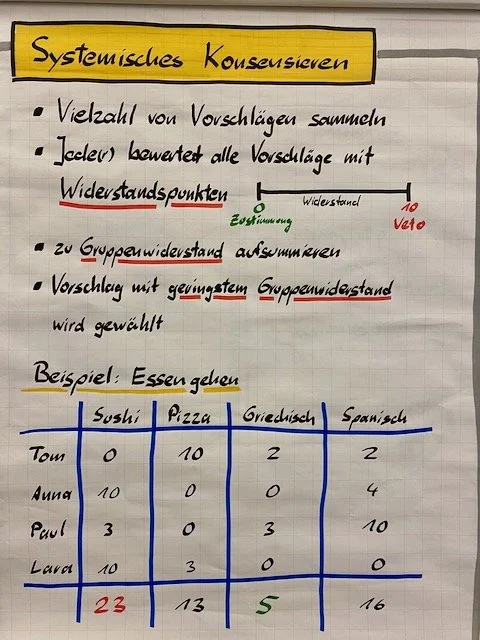 Systemisches Konsensieren
▪ Vielzahl von Vorschlägen sammeln
▪ Jede(r) bewertet alle Vorschläge mit
Widerstandspunkten
Widerstand
0 10
Zustimmung Veto
▪ zu Gruppenwiderstand aufsummieren
▪ Vorschlag mit geringstem Gruppenwiderstand
wird gewählt
Beispiel: Essen gehen
Sushi Pizza Griechisch Spanisch
Tom 0 10 2 2
Anna 10 0 0 4
Paul 3 0 3 10
Lara 10 3 0 0
23 13 5 16